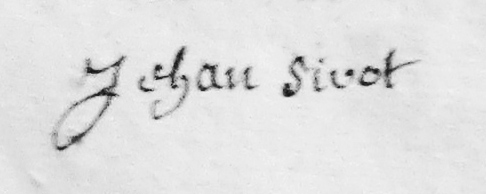 Jehan sivot